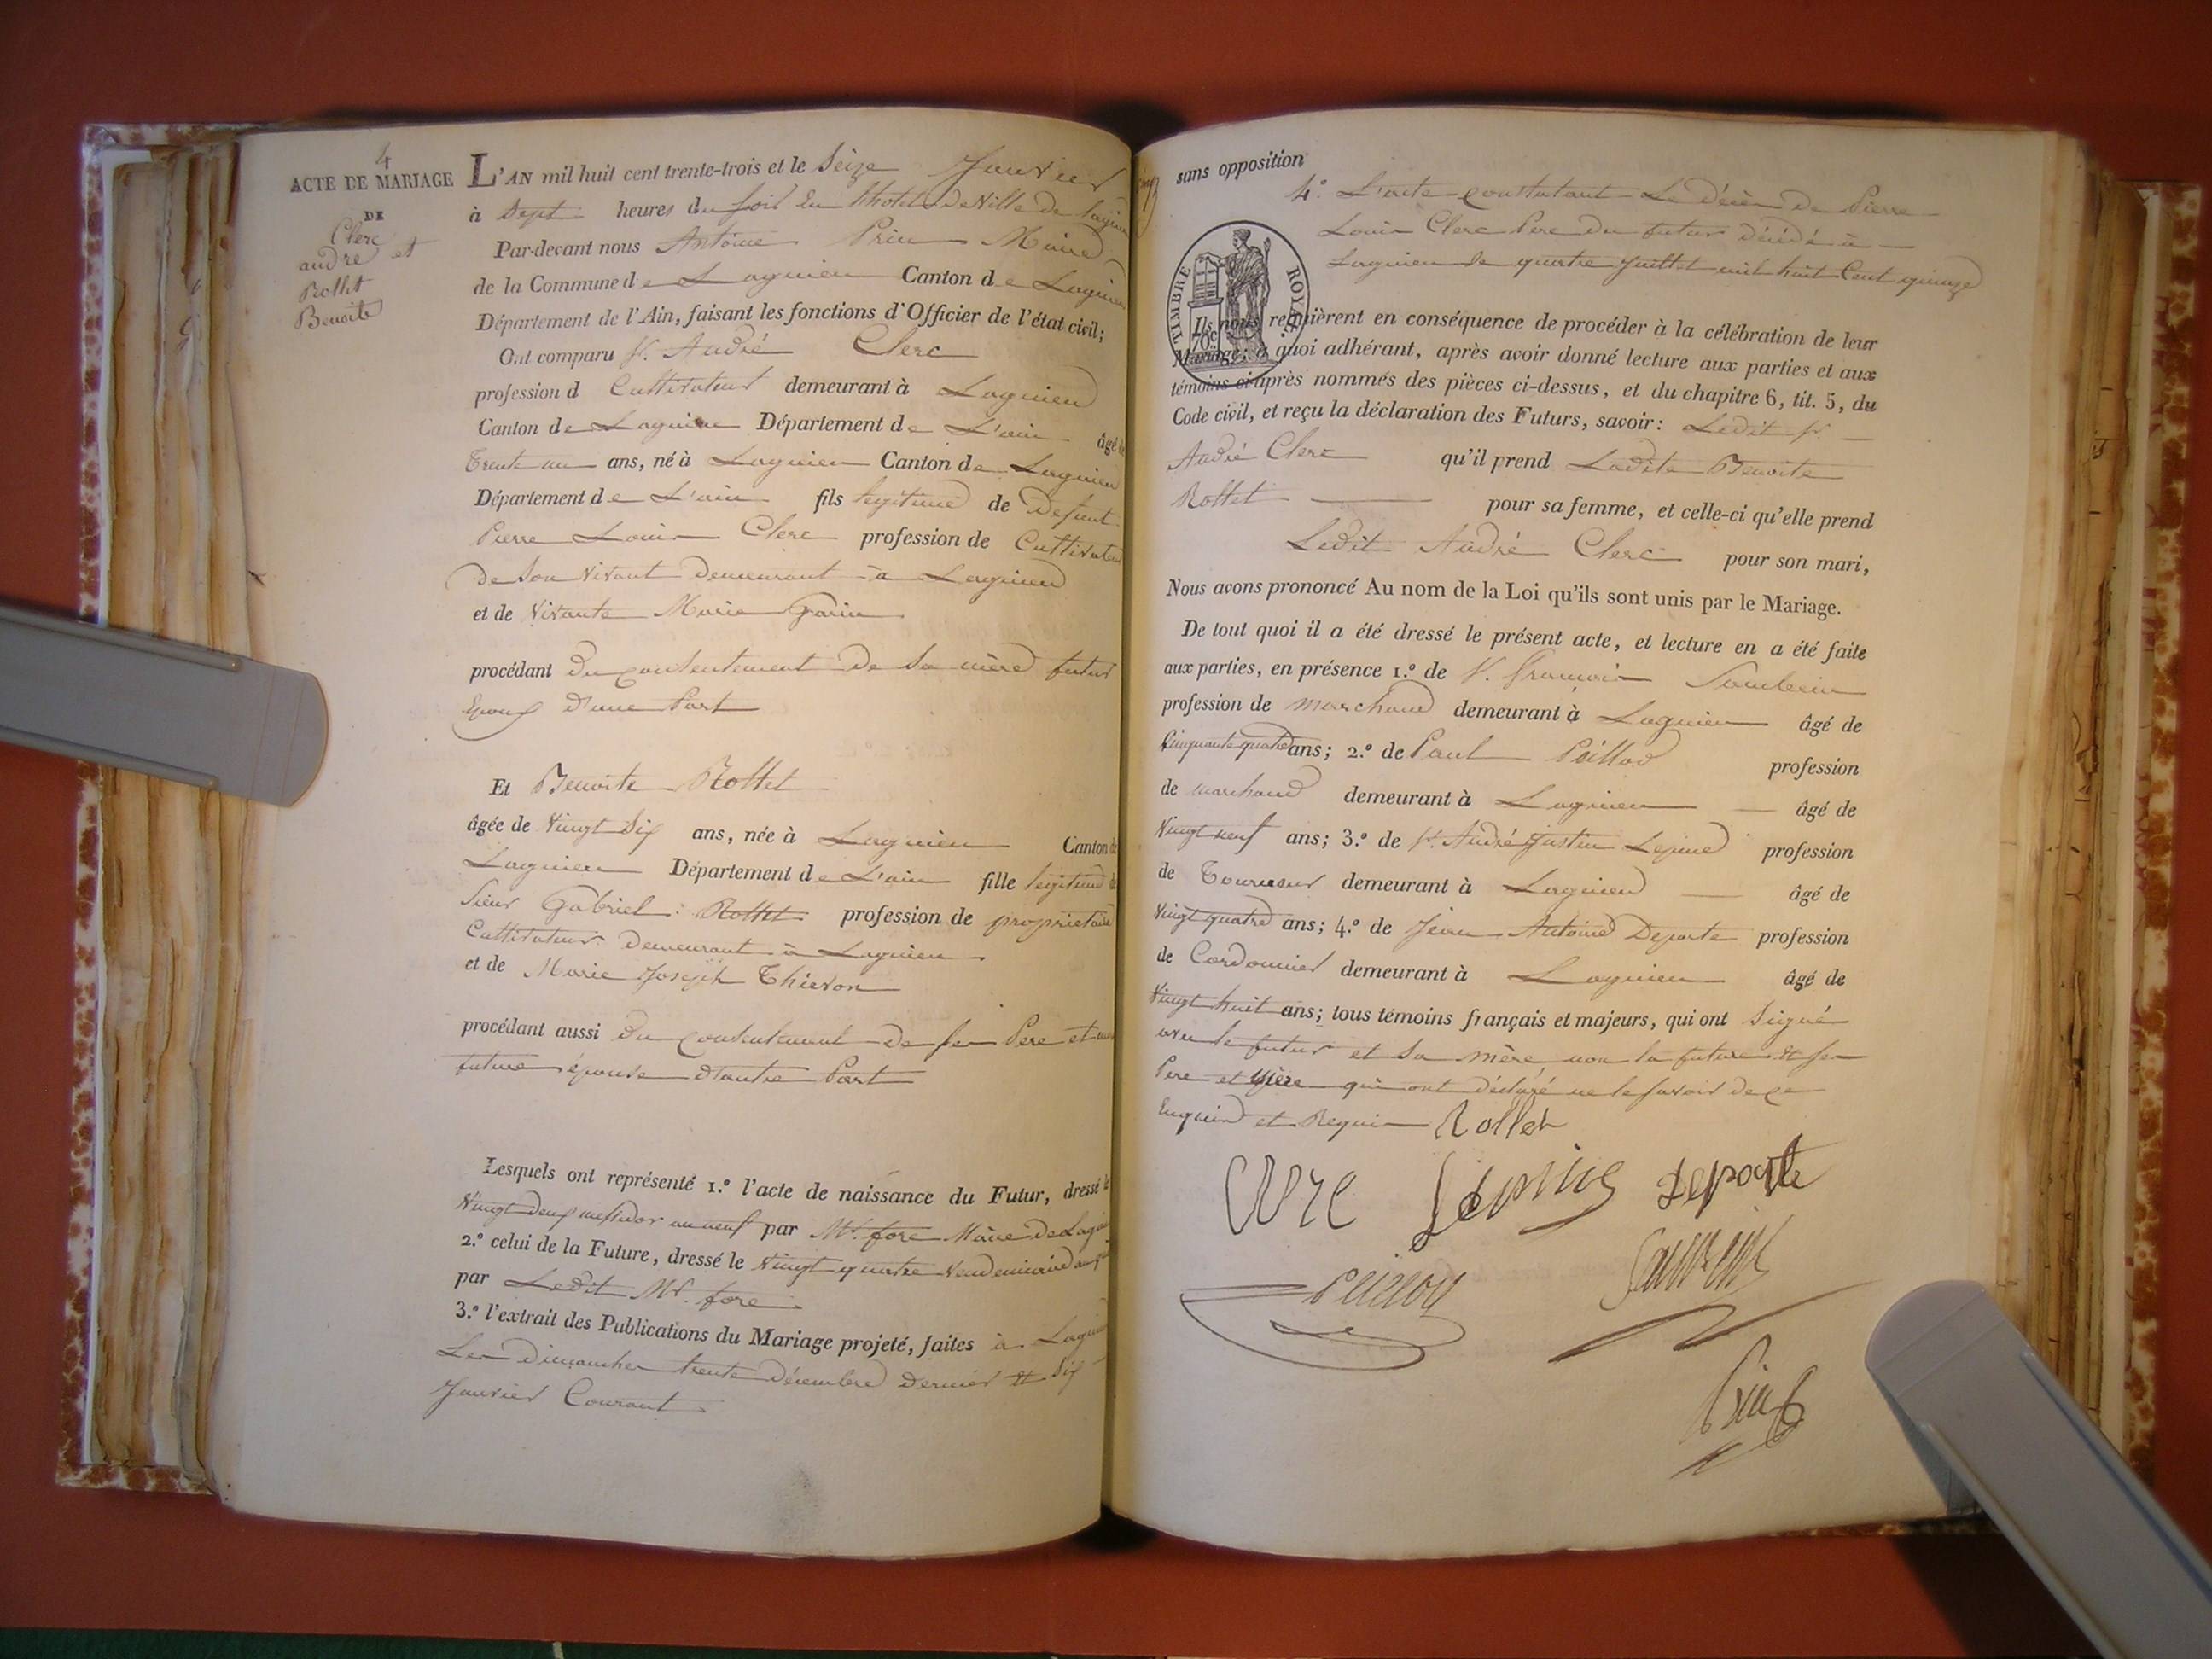 4
ACTE DE MARIAGE
DE
Clerc
andré et
Rollet
Benoite
L'AN mil huit cent trente-trois et le Seize Janvier
à Sept heures du soir En l'hotel de Ville de Lagnieu
Par-devant nous Antoine Prin Maire
de la Commune de Lagnieu Canton de Lagnieu
Département de l'Ain, faisant les fonctions d'Officier de l'état civil;
Ont comparu Sr. André Clerc
profession d Cultivateur demeurant à Lagnieu
Canton de Lagnieu Département de L'ain âgé de
Trente un ans, né à Lagnieu Canton de Lagnieu
Département de L'ain fils legitime de Defunt
Pierre Louis Clerc profession de Cultivateur
de Son Vivant Demeurant à Lagnieu
et de Vivante Marie Garin
procédant du Consentement de Sa mère futur
Epoux d'une Part
Et Benoite Rollet
âgée de Vingt Six ans, née à Lagnieu Canton de
Lagnieu Département de L'ain fille legitime de
Sieur Gabriel Rollet profession de proprietaire
Cultivateur Demeurant à Lagnieu
et de Marie Joseph Thievon
procédant aussi du Consentement de Ses Pere et mere
future épouse d'autre Part
Lesquels ont représenté 1.º l'acte de naissance du Futur, dressé le
Vingt deux messidor an neuf par Mr. fore Maire de Lagnieu
2.º celui de la Future, dressé le Vingt quatre Vendemiaire an
par Ledit Mr. fore
3.º l'extrait des Publications du Mariage projeté, faites à Lagnieu
Les Dimanches trente Décembre Dernier et Six
Janvier Courant
sans opposition
4.º L'acte Constatant Le Décès de Pierre
Louis Clerc Pere du futur Décédé à
Lagnieu le quatre Juillet mil huit Cent quinze
TIMBRE ROYAL
70c
Ils nous requièrent en conséquence de procéder à la célébration de leur
Mariage; à quoi adhérant, après avoir donné lecture aux parties et aux
témoins ci-après nommés des pièces ci-dessus, et du chapitre 6, tit. 5, du
Code civil, et reçu la déclaration des Futurs, savoir: Ledit Sr
André Clerc qu'il prend Ladite Benoite
Rollet pour sa femme, et celle-ci qu'elle prend
Ledit André Clerc pour son mari,
Nous avons prononcé Au nom de la Loi qu'ils sont unis par le Mariage.
De tout quoi il a été dressé le présent acte, et lecture en a été faite
aux parties, en présence 1.º de Sr. François
profession de marchand demeurant à Lagnieu âgé de
Cinquante quatre ans; 2.º de Paul Peillod profession
de marchand demeurant à Lagnieu âgé de
Vingt neuf ans; 3.º de Sr. André Justin Lepine profession
de Tourneur demeurant à Lagnieu âgé de
Vingt quatre ans; 4.º de Jean Antoine Deporte profession
de Cordonnier demeurant à Lagnieu âgé de
Vingt huit ans; tous témoins français et majeurs, qui ont Signé
avec le futur et Sa mère, non la future et Ses
Pere et Mère qui ont déclaré ne le Savoir de ce
Enquis et Requis Rollet
Clerc Lépine Deporte
Peillod
Prin